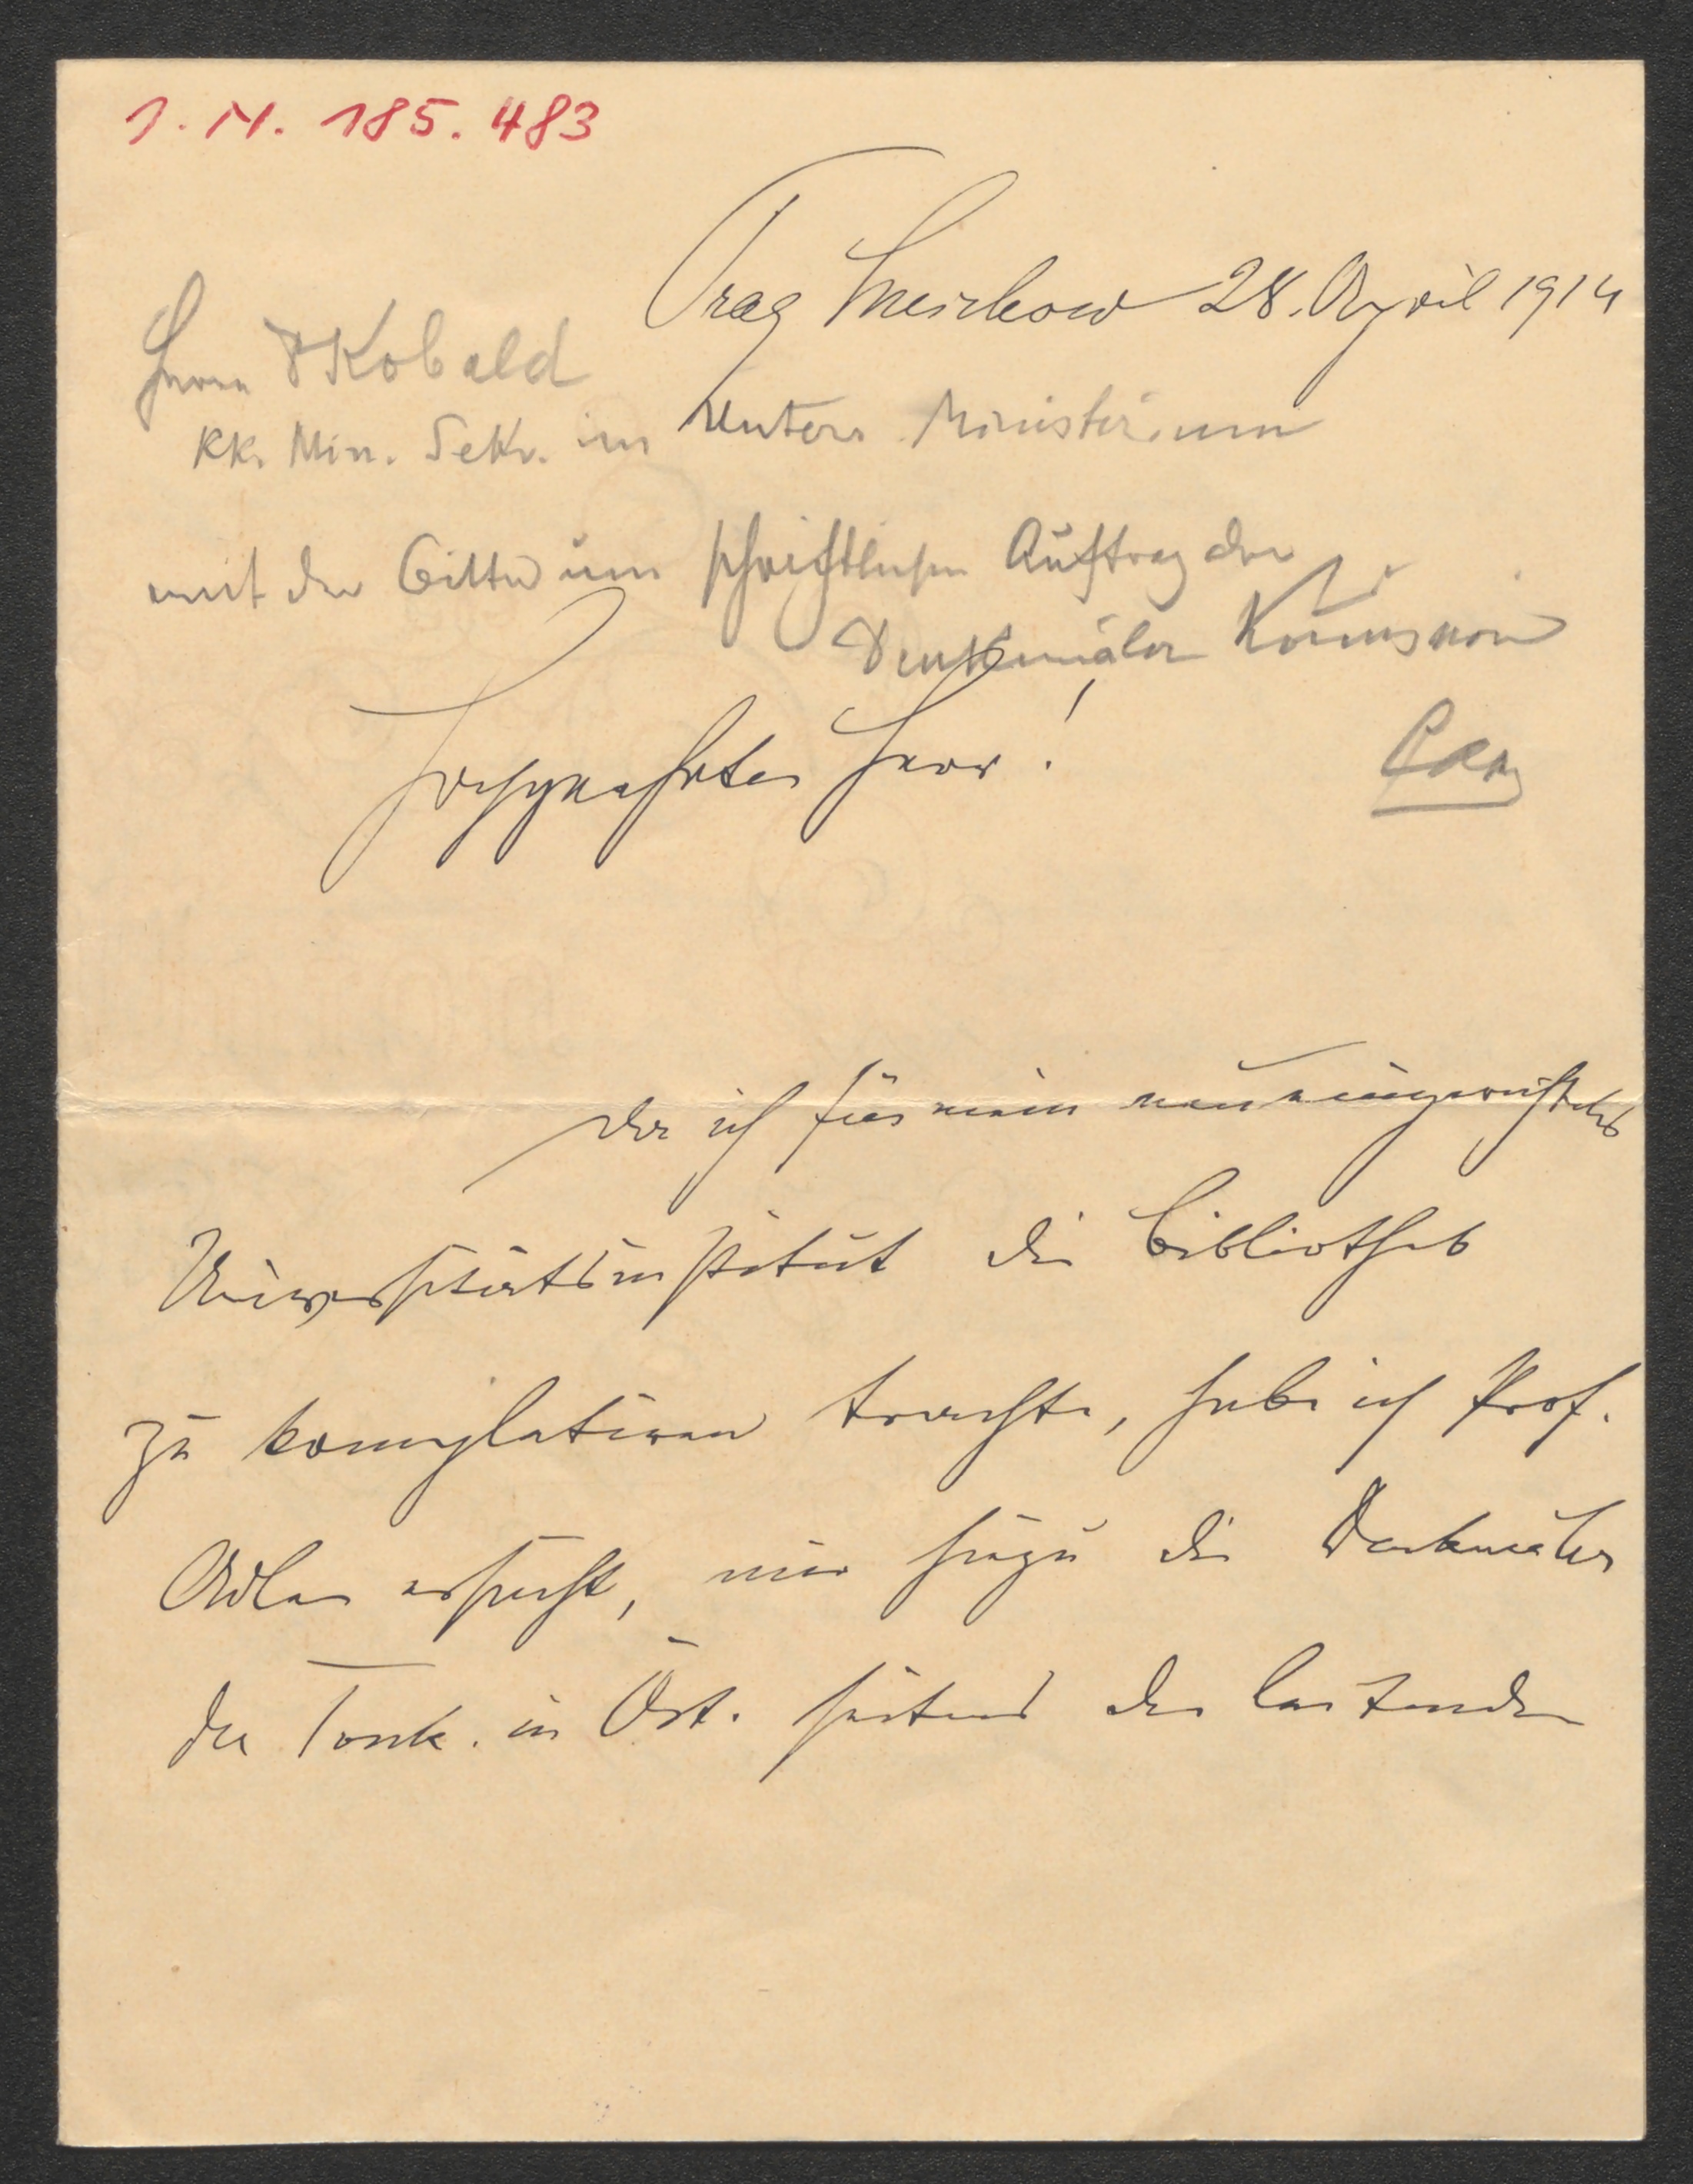 I. N. 185.483
Prag Smichow 28. April 1914
Herrn D Kobald
kk. Min. Sekr. im Unterr Ministerium
mit der Bitte um schriftlichen Auftrag der
Denkmäler Kommission
Hochgeehrter Herr!
Da ich für mein neu eingerichtetes
Universitätsinstitut die Bibliothek
zu kompletieren trachte, habe ich Prof.
Adler ersucht, mir hiezu die Denkmäler
der Tonk. in Öst. seitens der leitenden